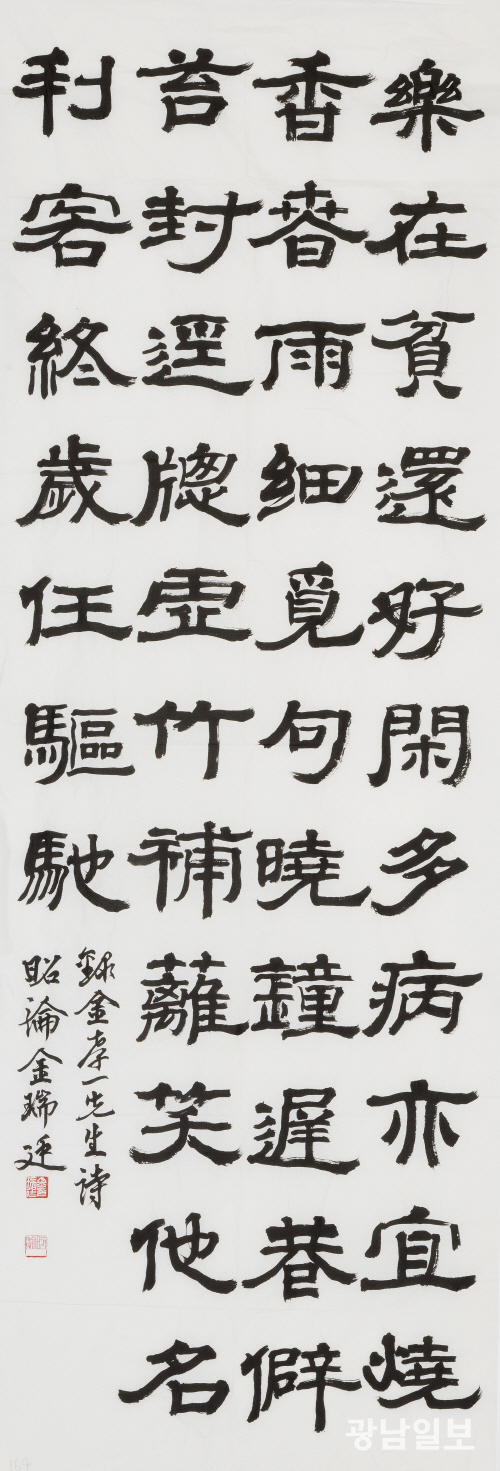 樂在貧還好閑多病亦宜燒
香春雨細覓句曉鐘遲巷僻
苔封逕牕虛竹補蘺笑他名
利客終歲任驅馳
錄金孝一先生詩
金瑞
광남일보